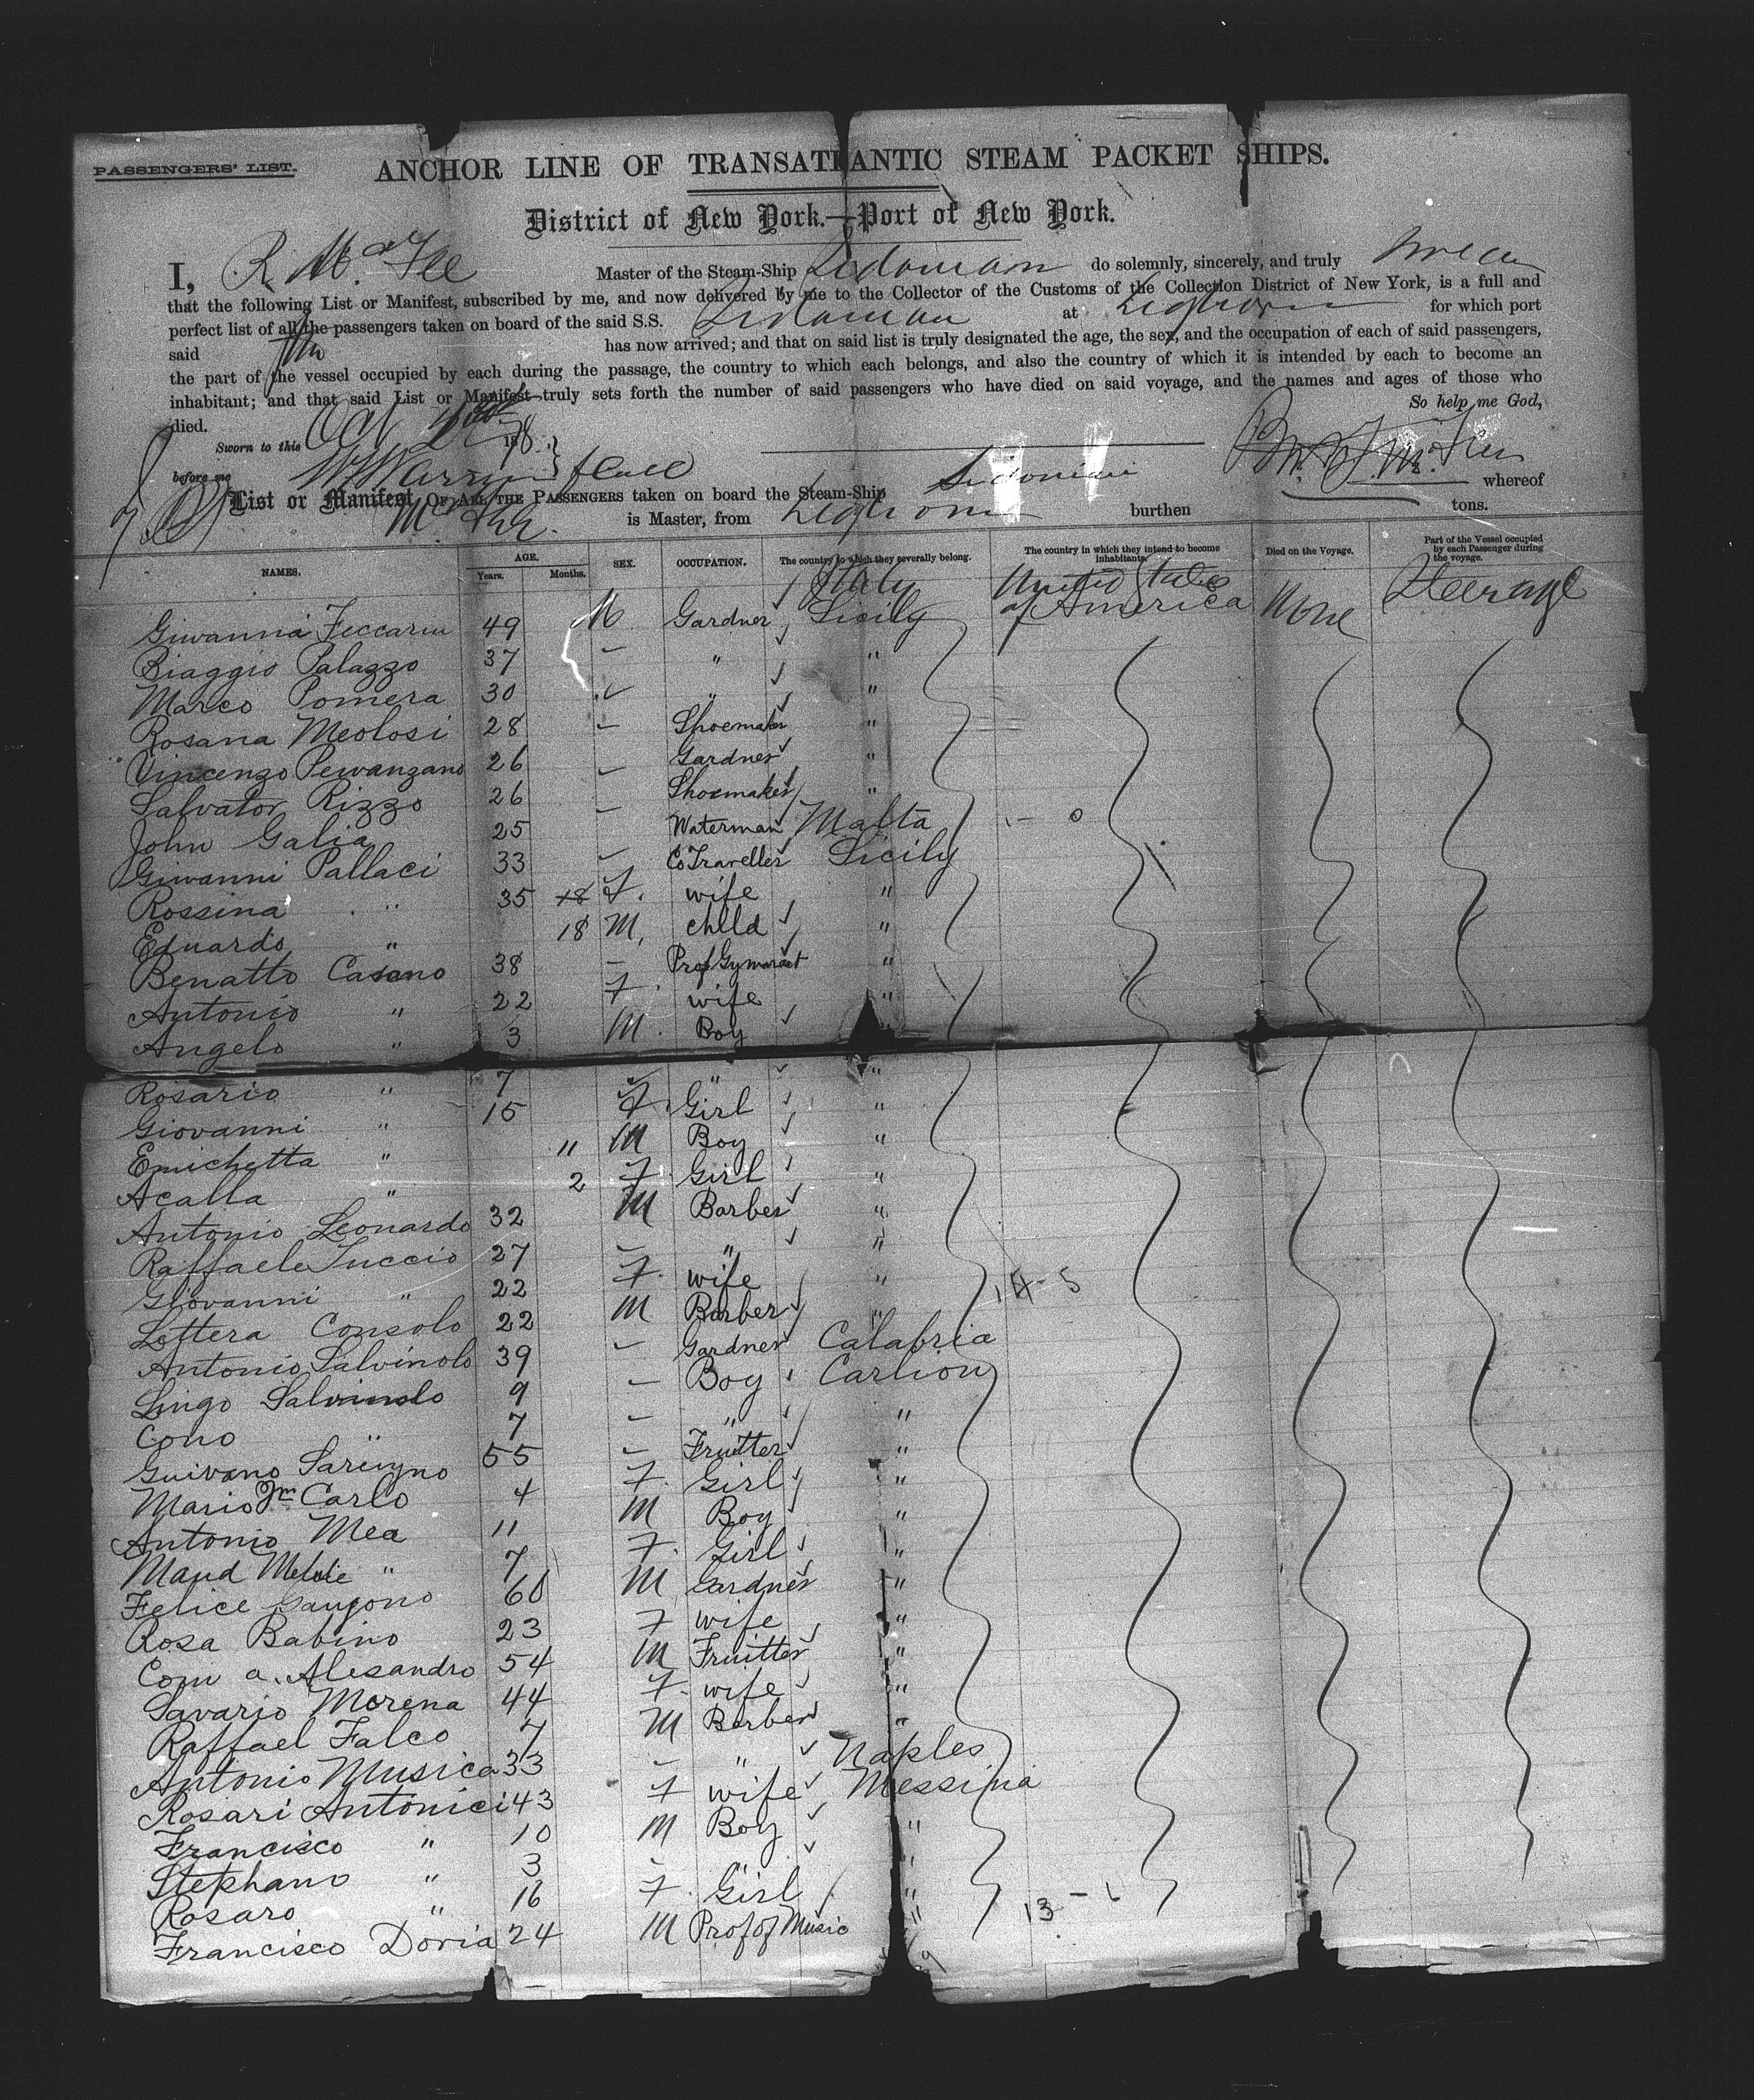 PASSENGERS' LIST.
ANCHOR LINE OF TRANSATLANTIC STEAM PACKET SHIPS.
District of New York.—Port of New York.
I, R. McFee Master of the Steam-Ship Sidonian do solemnly, sincerely, and truly swear
that the following List or Manifest, subscribed by me, and now delivered by me to the Collector of the Customs of the Collection District of New York, is a full and
perfect list of all the passengers taken on board of the said S.S. Sidonian at Leghorn for which port
said has now arrived; and that on said list is truly designated the age, the sex, and the occupation of each of said passengers,
the part of the vessel occupied by each during the passage, the country to which each belongs, and also the country of which it is intended by each to become an
inhabitant; and that said List or Manifest truly sets forth the number of said passengers who have died on said voyage, and the names and ages of those who
died. So help me God,
Sworn to this Oct 187
before me
List or Manifest OF ALL THE PASSENGERS taken on board the Steam-Ship Sidonian whereof
McFee is Master, from Leghorn burthen tons.
NAMES. AGE. Years. Months. SEX. OCCUPATION. The country to which they severally belong. The country in which they intend to become inhabitants. Died on the Voyage. Part of the Vessel occupied by each Passenger during the voyage.
Italy United States
Giwanna Feccarm 49 M Gardner Sicily of America None Steerage
Biaggio Palazzo 37 " "
Marco Pomera 30 " "
Rosana Meolosi 28 Shoemaker "
Vincenzo Pewanzano 26 Gardner "
Salvator Rizzo 26 Shoemaker "
John Galia 25 Waterman Malta
Giwanni Pallaci 33 Co Traveller Sicily
Rossina " 35 18 F. wife "
Eduardo " 18 M. chlld "
Benatto Casano 38 Prof Gymnast "
Antonio " 22 F. wife "
Angelo " 3 M. Boy "
Rosario " 7 " "
Giovanni " 15 F. Girl "
Emichetta " 11 M Boy "
Acalla " 2 F. Girl "
Antonio Leonardo 32 M Barber "
Raffaele Tuccio 27 " "
Giovanni " 22 F. wife " 14-5
Lettera Consolo 22 M Barber "
Antonio Salvinolo 39 Gardner Calabria
Lingo Salvinolo 9 Boy Carlion
Cono " 7 " "
Guivano Sarcugno 55 Fruitter "
Mario Jm Carlo 4 F. Girl "
Antonio Mea 11 M Boy "
Maud Melie " 7 F. Girl "
Felice Gaugono 60 M Gardner "
Rosa Babino 23 F wife "
Com a. Alesandro 54 M Fruitter "
Savario Morena 44 F. wife "
Raffael Falco 7 M Barber "
Antonio Musica 33 " Naples
Rosari Antonici 43 F wife Messina
Francisco " 10 M Boy "
Stephano " 3 " "
Rosaro " 16 F. Girl " 13-1
Francisco Doria 24 M Prof of Music "